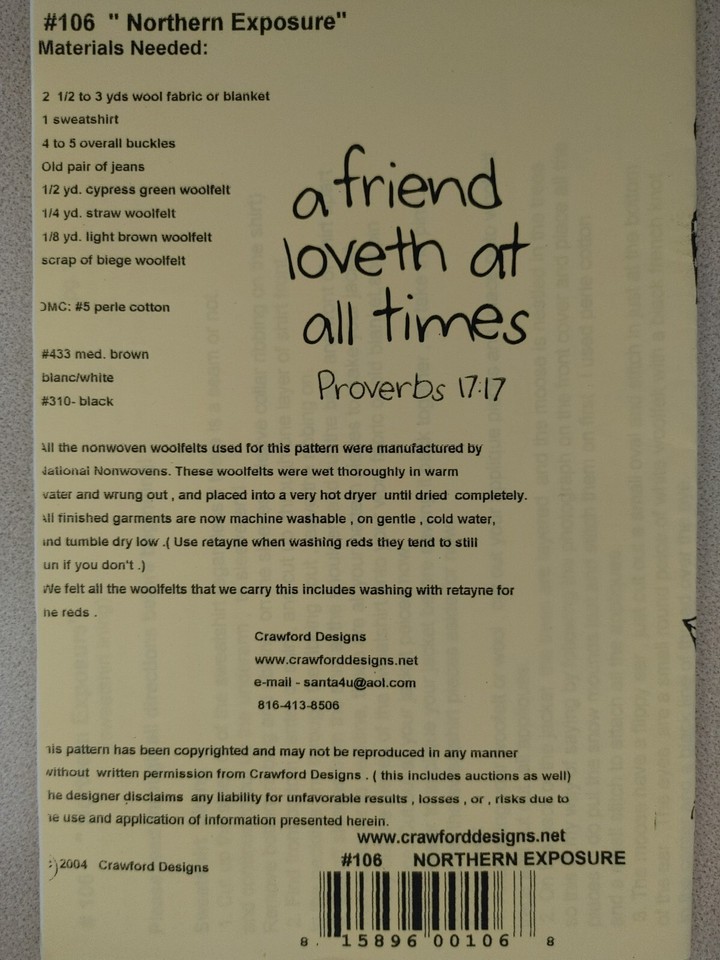 #106 " Northern Exposure"
Materials Needed:
2 1/2 to 3 yds wool fabric or blanket
1 sweatshirt
4 to 5 overall buckles
Old pair of jeans
1/2 yd. cypress green woolfelt
1/4 yd. straw woolfelt
1/8 yd. light brown woolfelt
scrap of biege woolfelt
a friend
loveth at
all times
Proverbs 17:17
DMC: #5 perle cotton
#433 med. brown
blanc/white
#310- black
All the nonwoven woolfelts used for this pattern were manufactured by
National Nonwovens. These woolfelts were wet thoroughly in warm
water and wrung out , and placed into a very hot dryer until dried completely.
All finished garments are now machine washable , on gentle , cold water,
and tumble dry low .( Use retayne when washing reds they tend to still
un if you don't .)
We felt all the woolfelts that we carry this includes washing with retayne for
he reds .
Crawford Designs
www.crawforddesigns.net
e-mail - santa4u@aol.com
816-413-8506
his pattern has been copyrighted and may not be reproduced in any manner
without written permission from Crawford Designs . ( this includes auctions as well)
he designer disclaims any liability for unfavorable results , losses , or , risks due to
he use and application of information presented herein.
www.crawforddesigns.net
:)2004 Crawford Designs
#106 NORTHERN EXPOSURE
8 15896 00106 8